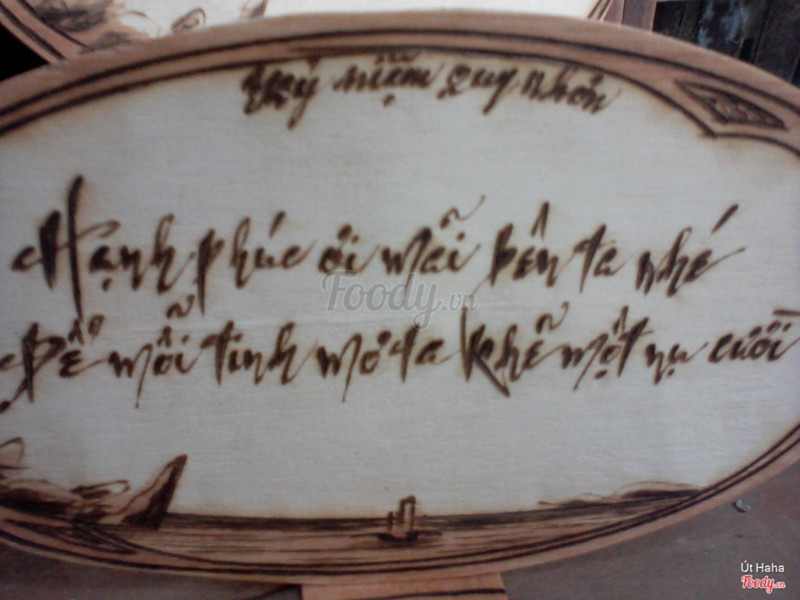 Quỷ niệm Quy Nhơn
Hạnh phúc ơi mãi bên ta nhé
Để mỗi tinh mơ ta khẽ một nụ cười
Foody.vn
Út Haha
Foody.vn